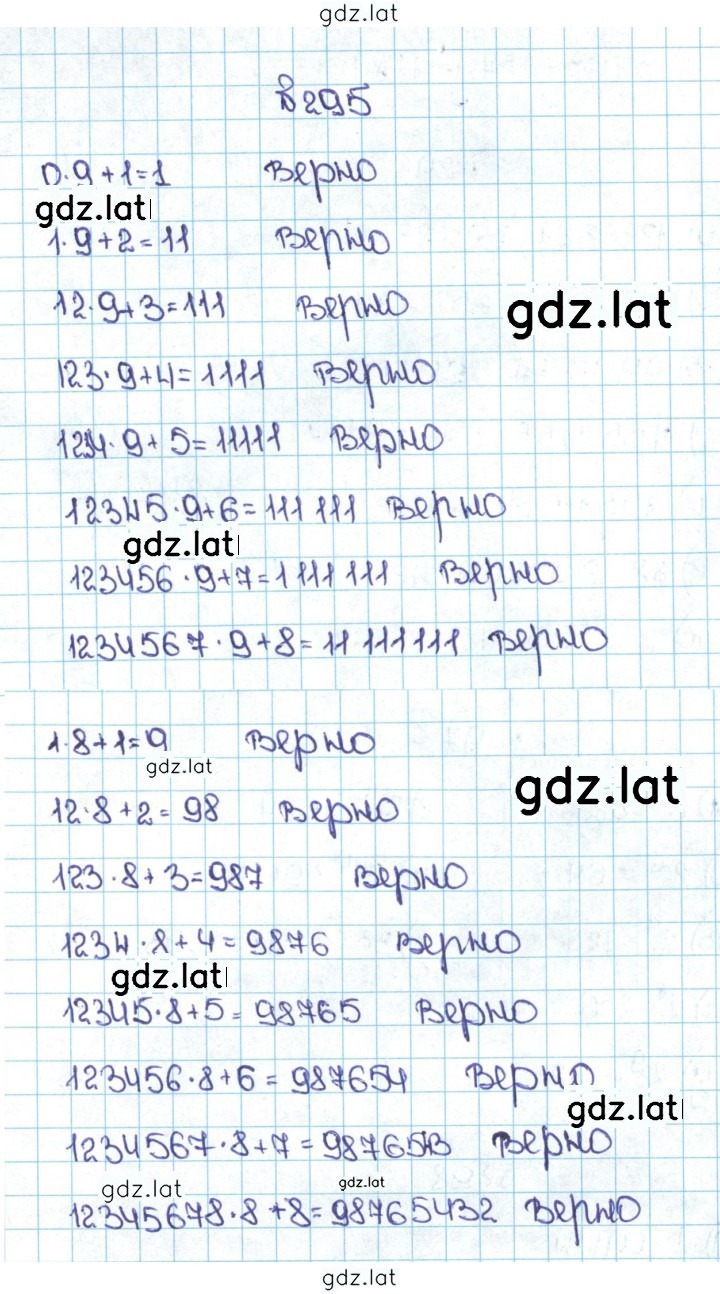 gdz.lat
№295
0·9+1=1 Верно
gdz.lat
1·9+2=11 Верно
12·9+3=111 Верно
gdz.lat
123·9+4=1111 Верно
1234·9+5=11111 Верно
12345·9+6=111 111 Верно
gdz.lat
123456·9+7=1 111 111 Верно
1234567·9+8=11 111 111 Верно
1·8+1=9 Верно
gdz.lat
gdz.lat
12·8+2=98 Верно
123·8+3=987 Верно
1234·8+4=9876 Верно
gdz.lat
12345·8+5=98765 Верно
123456·8+6=987654 Верно
gdz.lat
1234567·8+7=9876543 Верно
gdz.lat
gdz.lat
12345678·8+8=98765432 Верно
gdz.lat